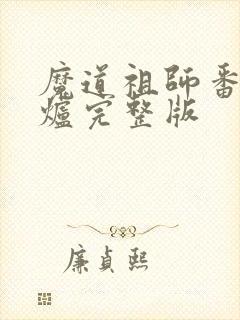 魔道祖師番
爐完整版
廉貞熙